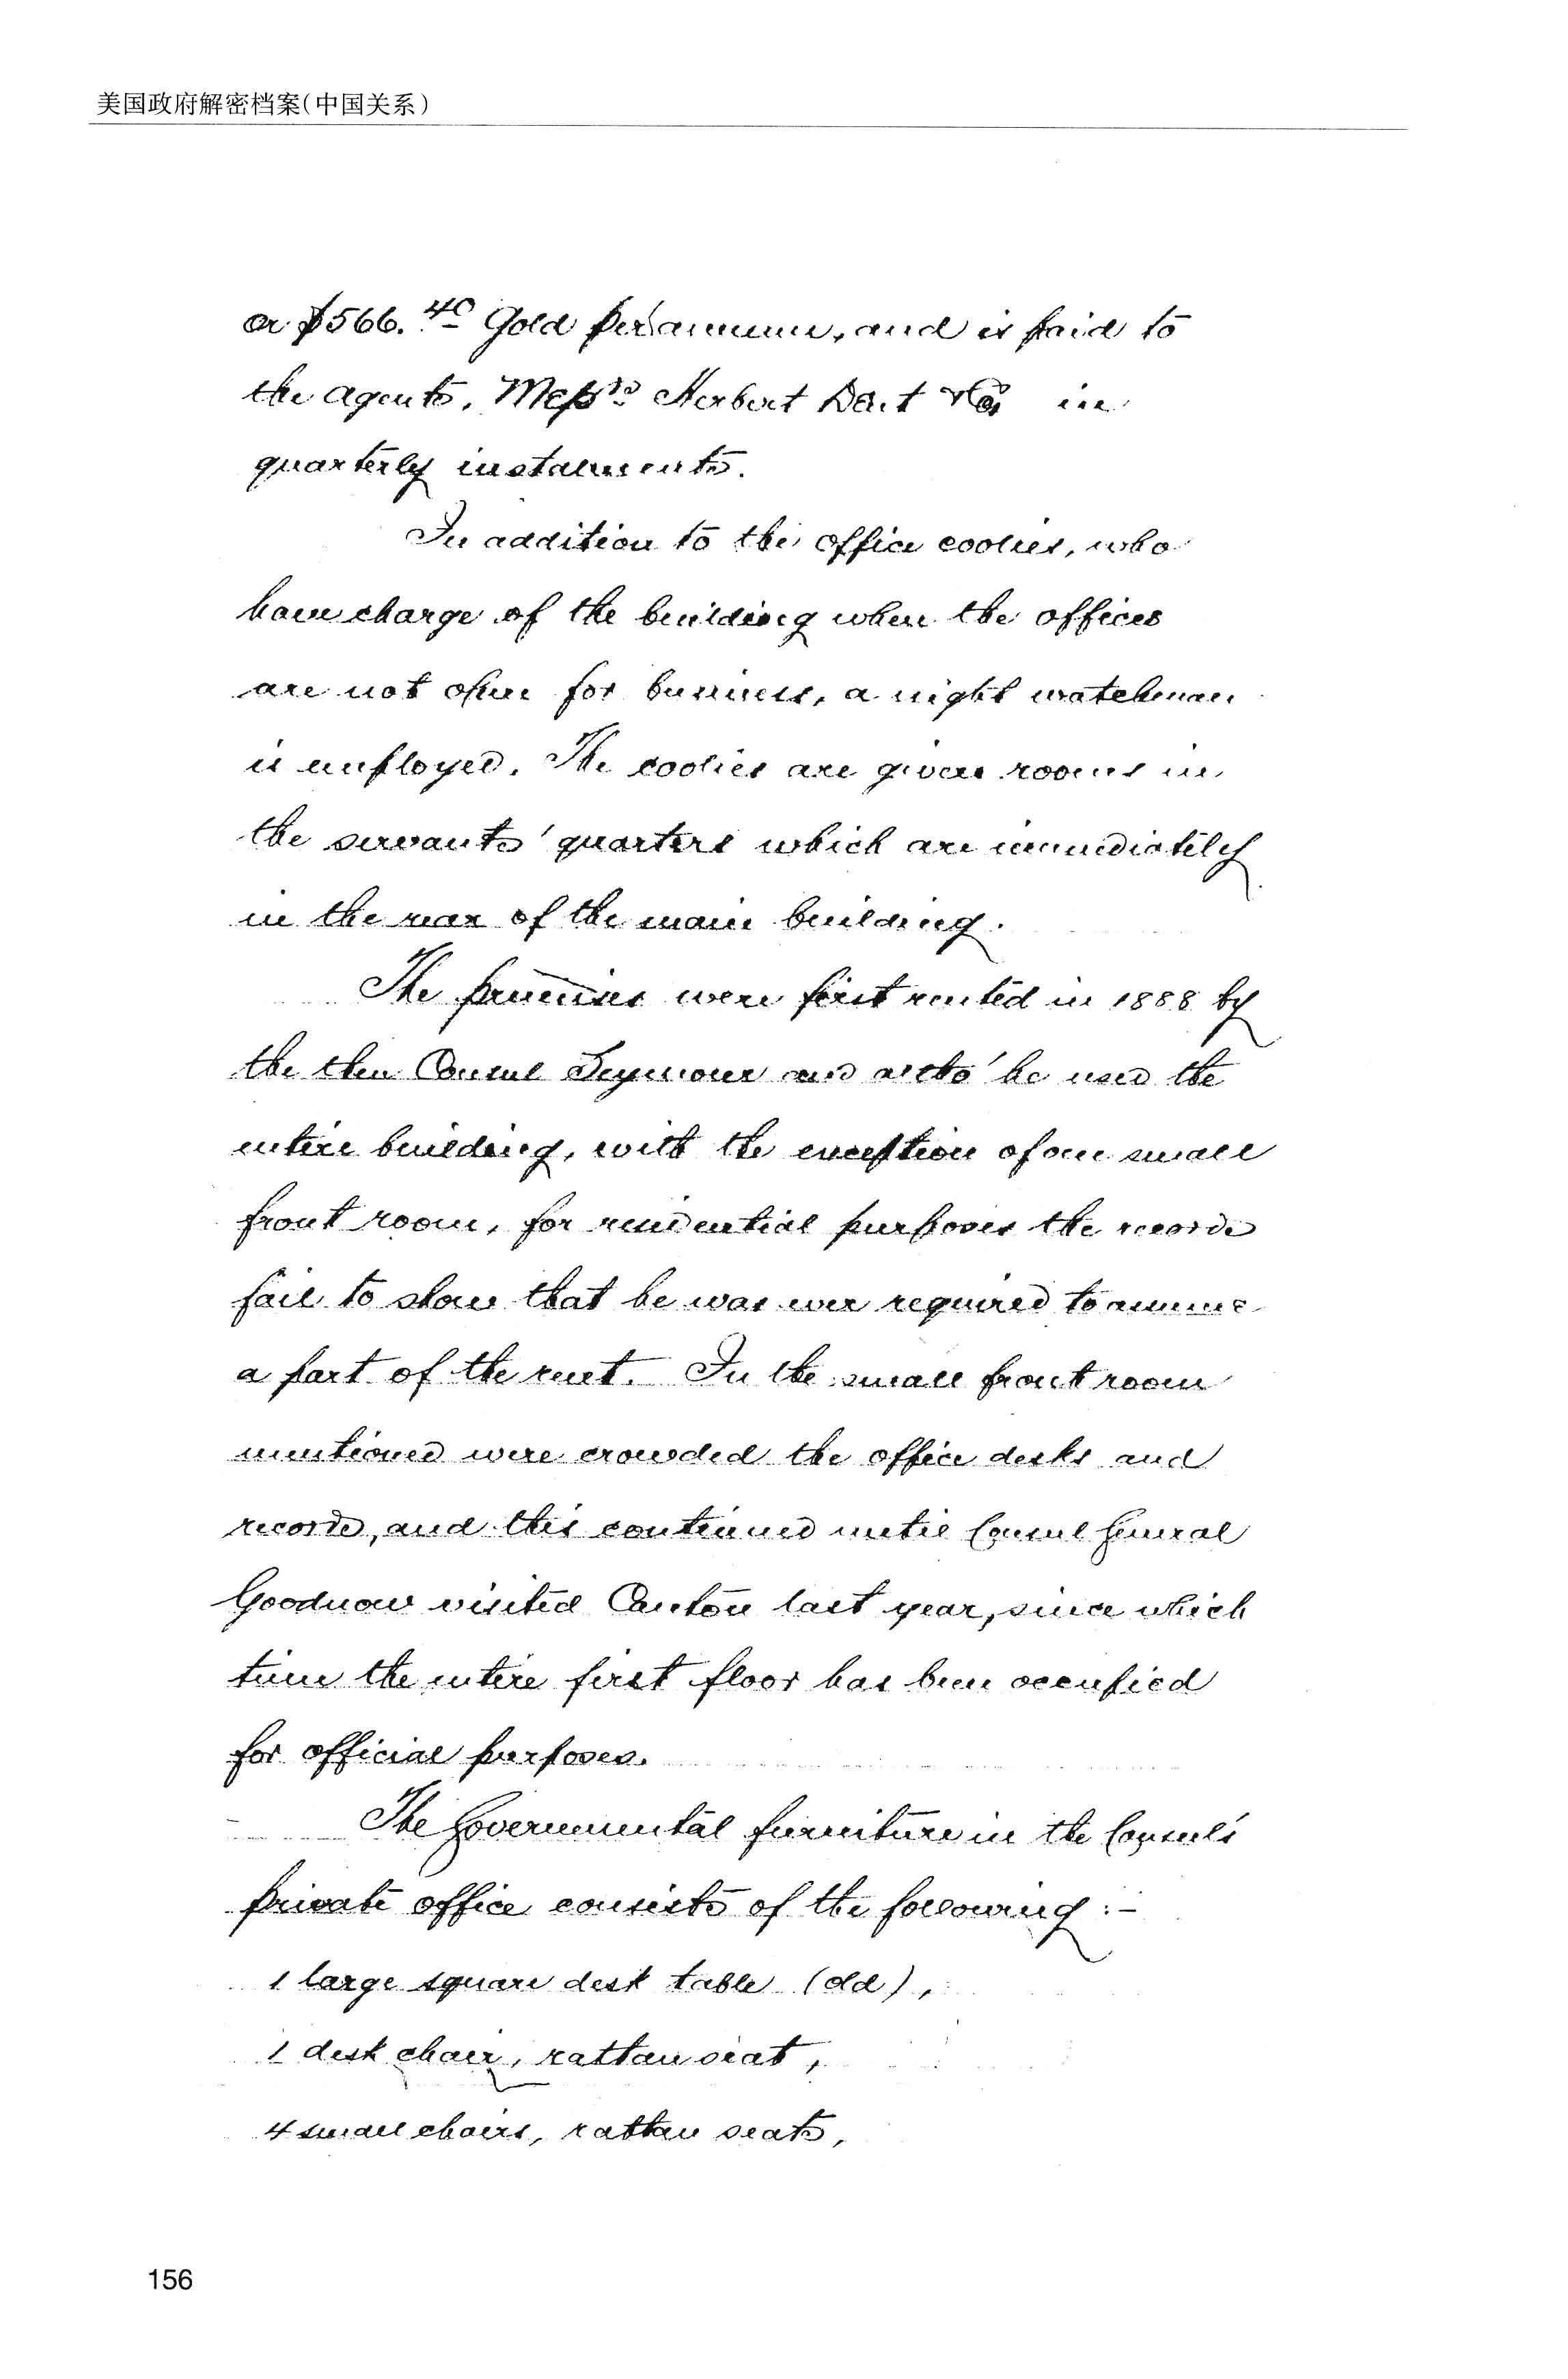 美国政府解密档案(中国关系)
or $566.40 Gold per annum, and is paid to
the agents, Messrs Herbert Dent & Co, in
quarterly instalments.
In addition to the office coolies, who
have charge of the building when the offices
are not open for business, a night watchman
is employed. The coolies are given rooms in
the servants' quarters which are immediately
in the rear of the main building.
The premises were first rented in 1888 by
the then Consul Seymour and altho' he used the
entire building, with the exception of one small
front room, for residential purposes the records
fail to show that he was ever required to assume
a part of the rent. In the small front room
mentioned were crowded the office desks and
records, and this continued until Consul General
Goodnow visited Canton last year, since which
time the entire first floor has been occupied
for official purposes.
The Governmental furniture in the Consul's
private office consists of the following:-
1 large square desk table (old),
1 desk chair, rattan seat,
4 small chairs, rattan seats,
156